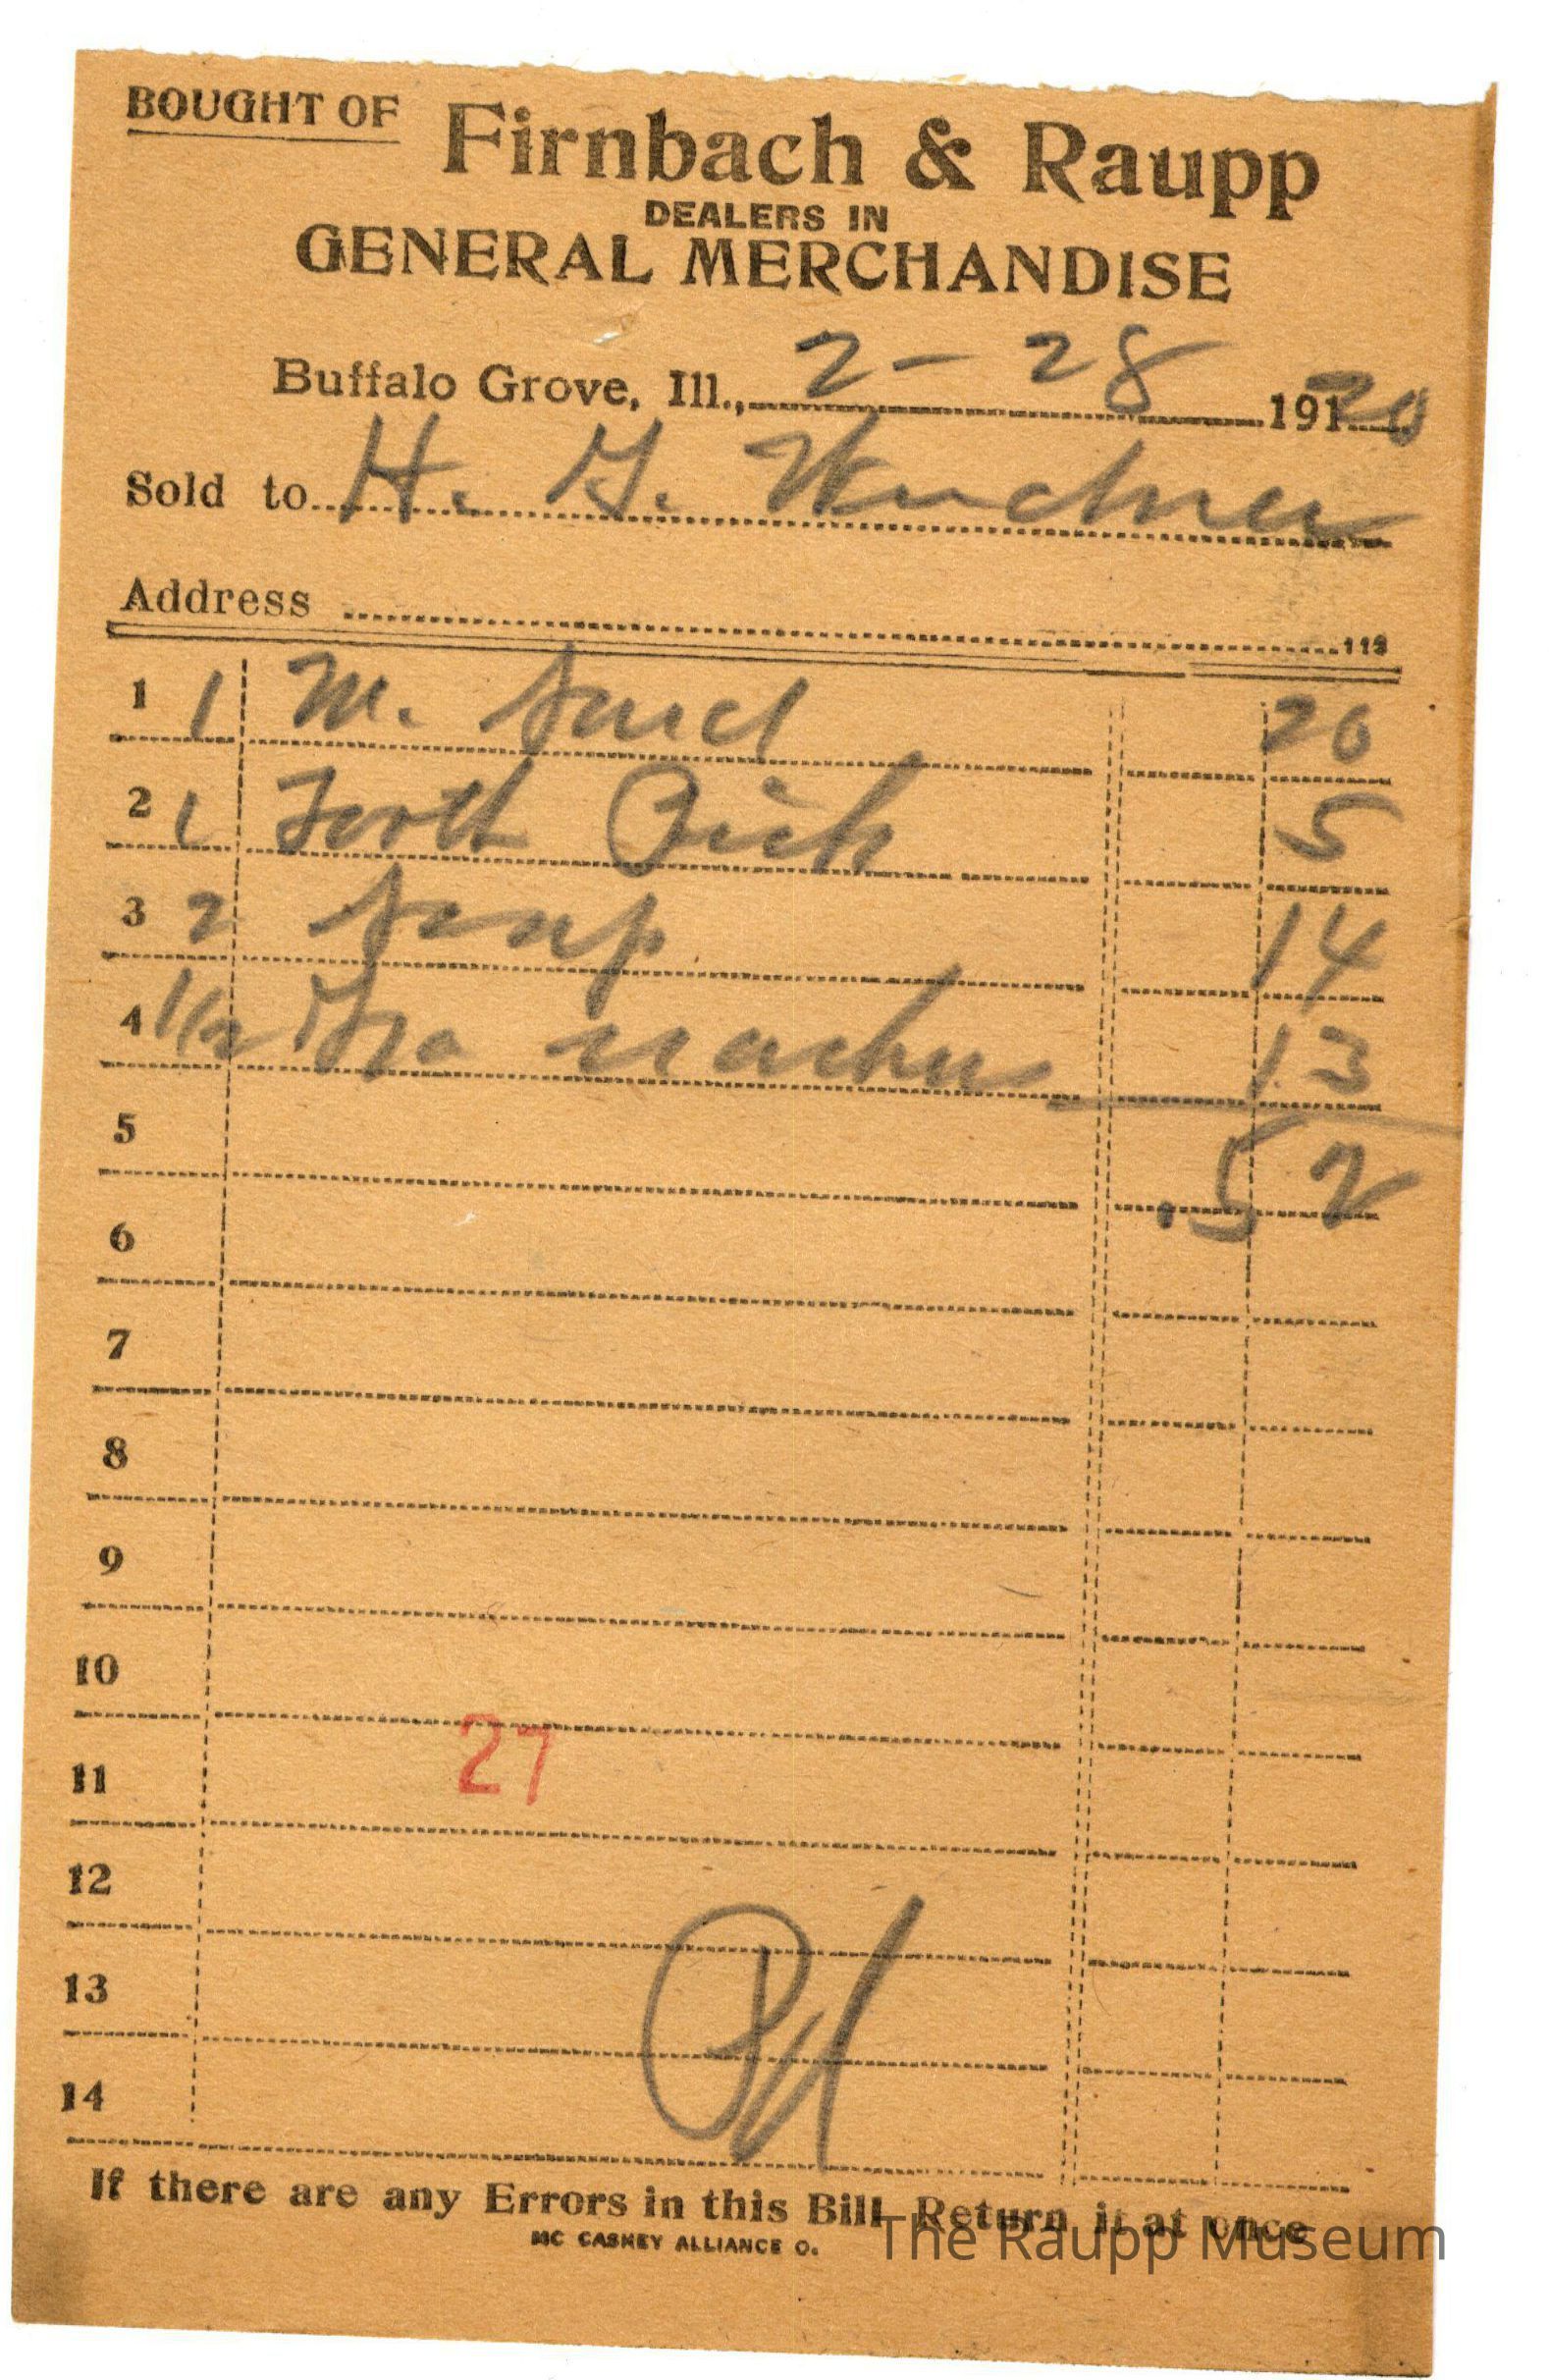 BOUGHT OF Firnbach & Raupp
DEALERS IN
GENERAL MERCHANDISE
Buffalo Grove, Ill., 2 - 28 191 20
Sold to H. G.
Address 113
1 1 M. 20
2 1 Tooth Pick 5
3 2 Soap 14
4 1/2 13
5 .52
6
7
8
9
10
11 27
12
13 Pd
14
If there are any Errors in this Bill Return it at once
MC CASKEY ALLIANCE O.
The Raupp Museum